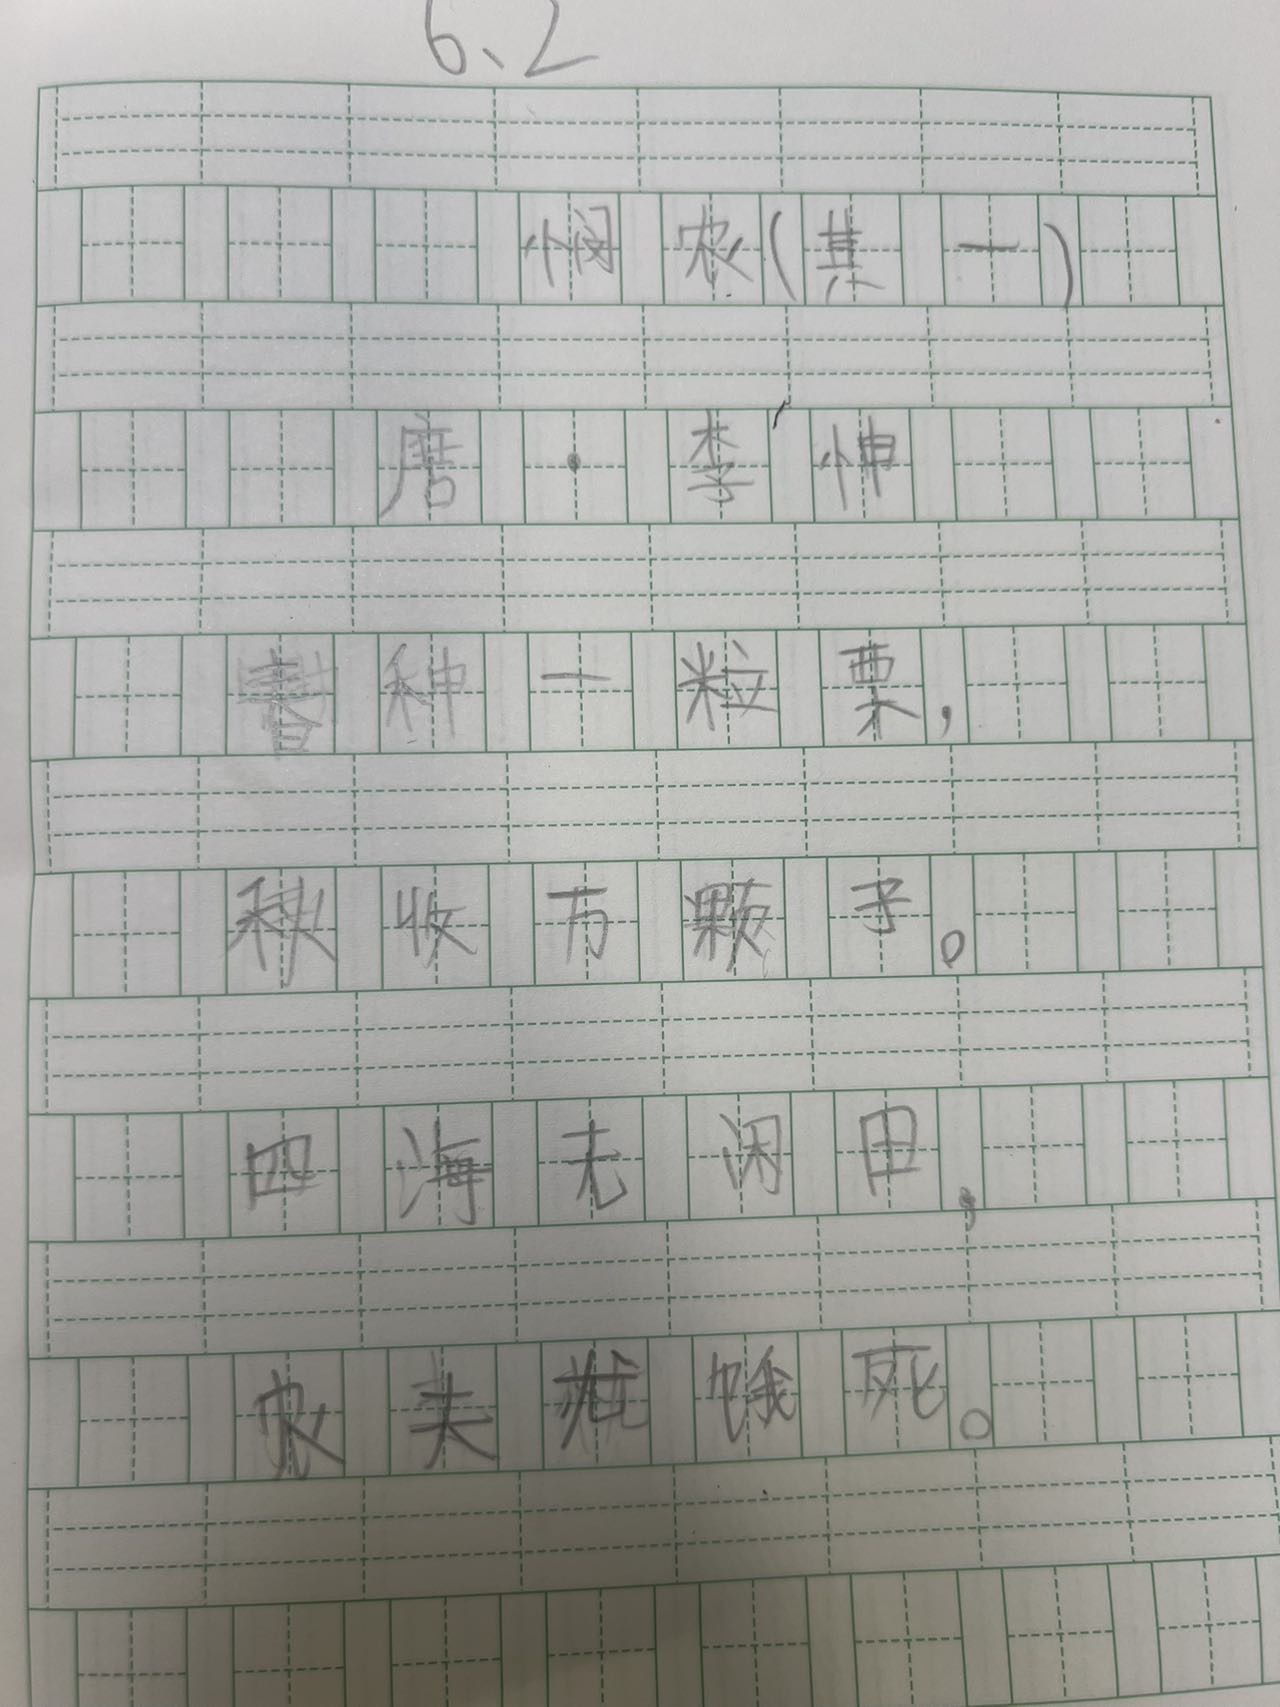 6、2
悯农(其一)
唐·李忡
春种一粒栗,
秋收万颗子。
四海无闲田,
农夫犹饿死。